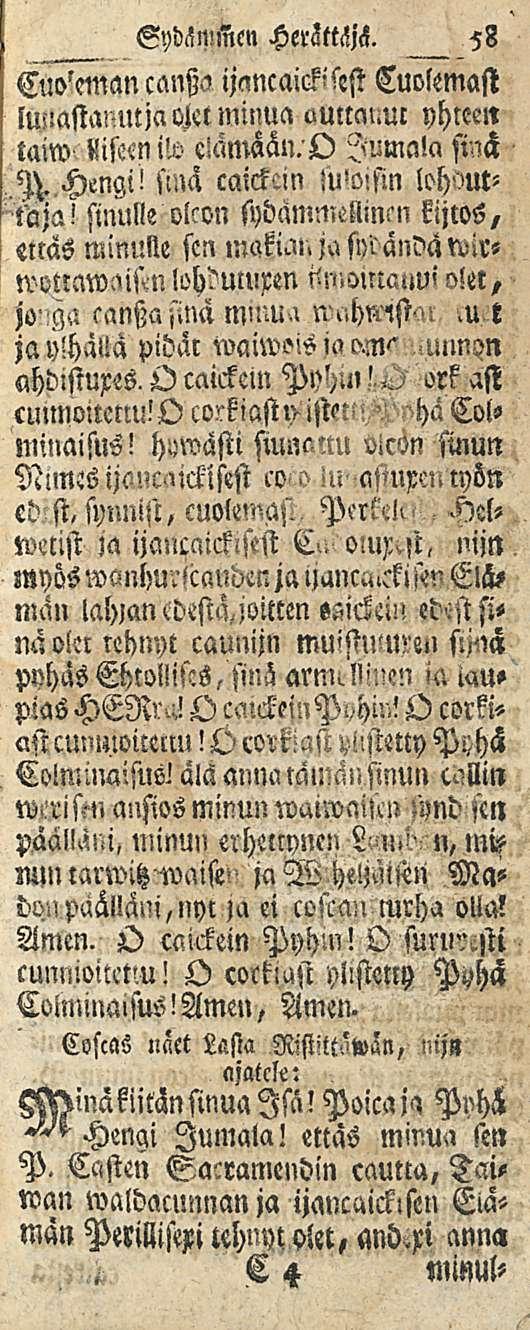 Sydämmen Herättäjä. 58
Cuoleman canßa ijancaickisest Cuolemast
lunastanut ja olet minua auttanut yhteen
taiwalliseen ilo elämään. O Jumala sinä
P. Hengi! sinä caickein suloisin lohdut-
taja! sinulle olcon sydämmellinen kijtos,
ettäs minulle sen makian ja sydändä wir-
wottawaisen lohdutuxen ilmoittanut olet,
jonga canßa sinä minua wahwistat
ja ylhällä pidät waiwois ja oman tunnon
ahdistuxes. O caickein Pyhin! O corkiast
cunnioitettu! O corkiast ylistetty Pyhä Col-
minaisus! hywästi siunattu olcon sinun
Nimes ijancaickisest coco lunastuxen työn
edest, synnist, cuolemast, Perkelest, Hel-
wetist ja ijancaickisest Cadotuxest, nijn
myös wanhurscauden ja ijancaickisen Elä-
män lahjan edestä, joitten caickein edest si-
nä olet tehnyt caunijn muistutuxen sijnä
pyhäs Ehtollises, sinä armollinen ja lau-
pias HERra! O caickein Pyhin! O corki-
ast cunnioitettu! O corkiast ylistetty Pyhä
Colminaisus! älä anna tämän sinun callin
werisen ansios minun waiwaisen syndisen
päälläni, minun erhettynen Lamban, mi-
nun tarwitzewaisen ja Wiheljäisen Ma-
don päälläni, nyt ja ei coscan turha olla!
Amen. O caickein Pyhin! O suruxesti
cunnioitettu! O corkiast ylistetty Pyhä
Colminaisus! Amen, Amen.
Coscas näet Lasta Ristittäwän, nijn
ajatele:
Minä kijtän sinua Isä! Poica ja Pyhä
Hengi Jumala! ettäs minua sen
P. Casten Sacramendin cautta, Tai-
wan waldacunnan ja ijancaickisen Elä-
män Perillisexi tehnyt olet, andexi anna
C 4 minul-